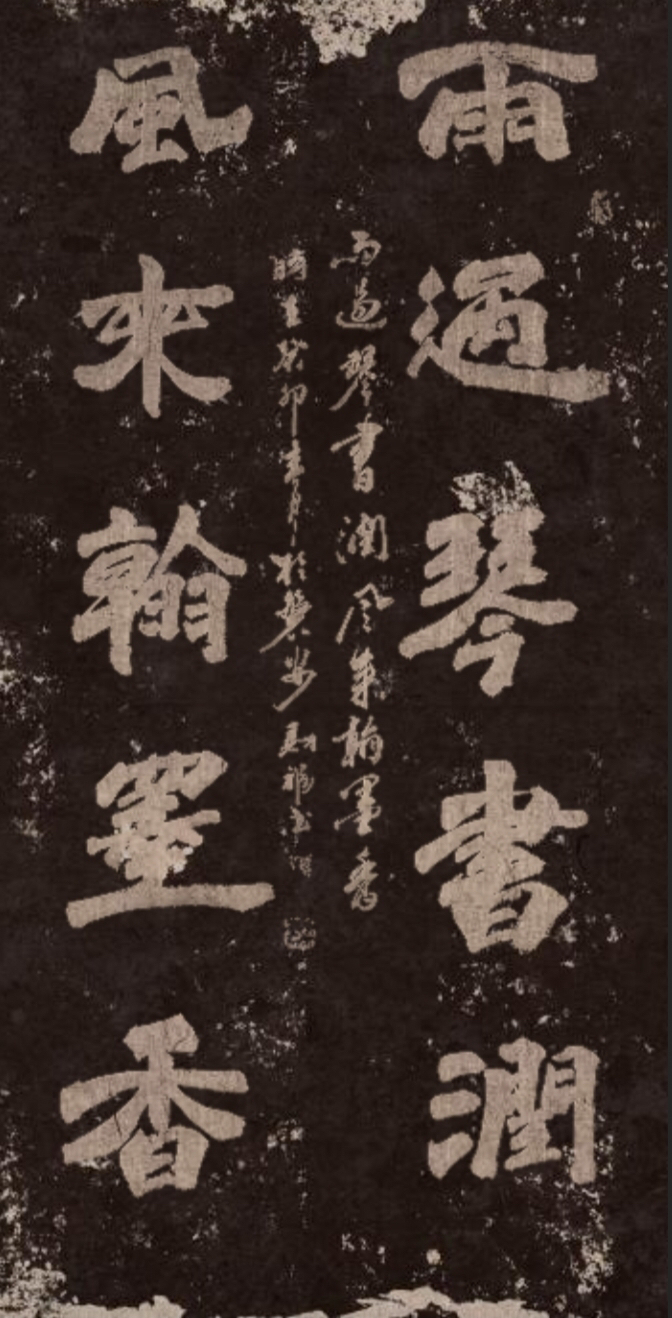 雨過琴書潤
風來翰墨香
雨過琴書潤風來翰墨香
時在癸卯年月於